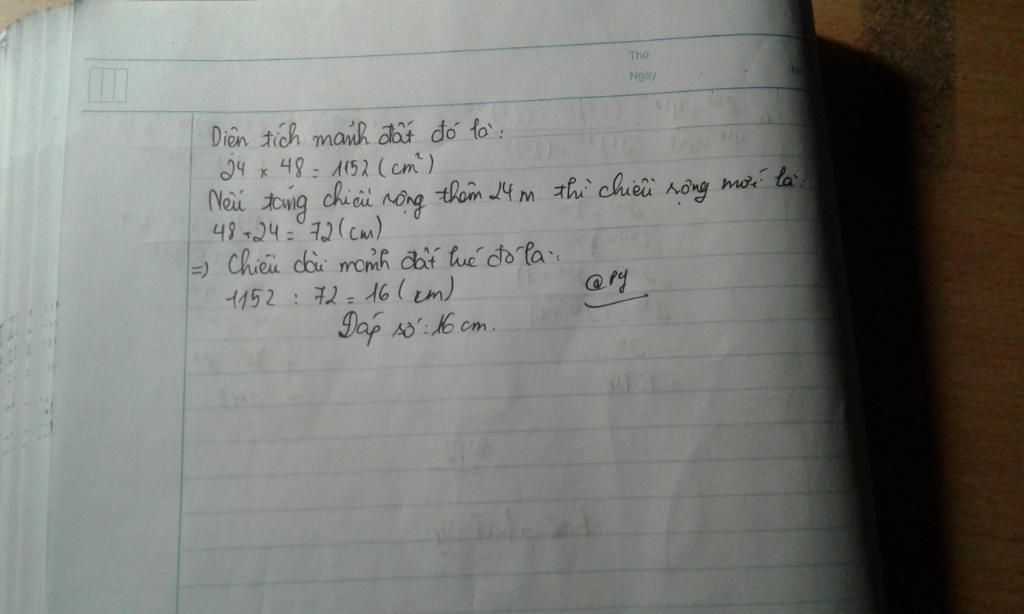 Thứ
Ngày
Diện tích mảnh đất đó là:
24 × 48 = 1152 (cm²)
Nếu tăng chiều rộng thêm 24 m thì chiều rộng mới là:
48 + 24 = 72 (cm)
=> Chiều dài mảnh đất lúc đó là:
1152 : 72 = 16 (cm)
@PY
Đáp số: 16 cm.